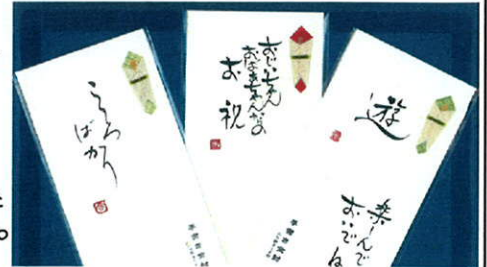 こころ
ばかり
おじいちゃん
おばあちゃんよりの
お祝
遊
楽しんで
おいでね
と
。